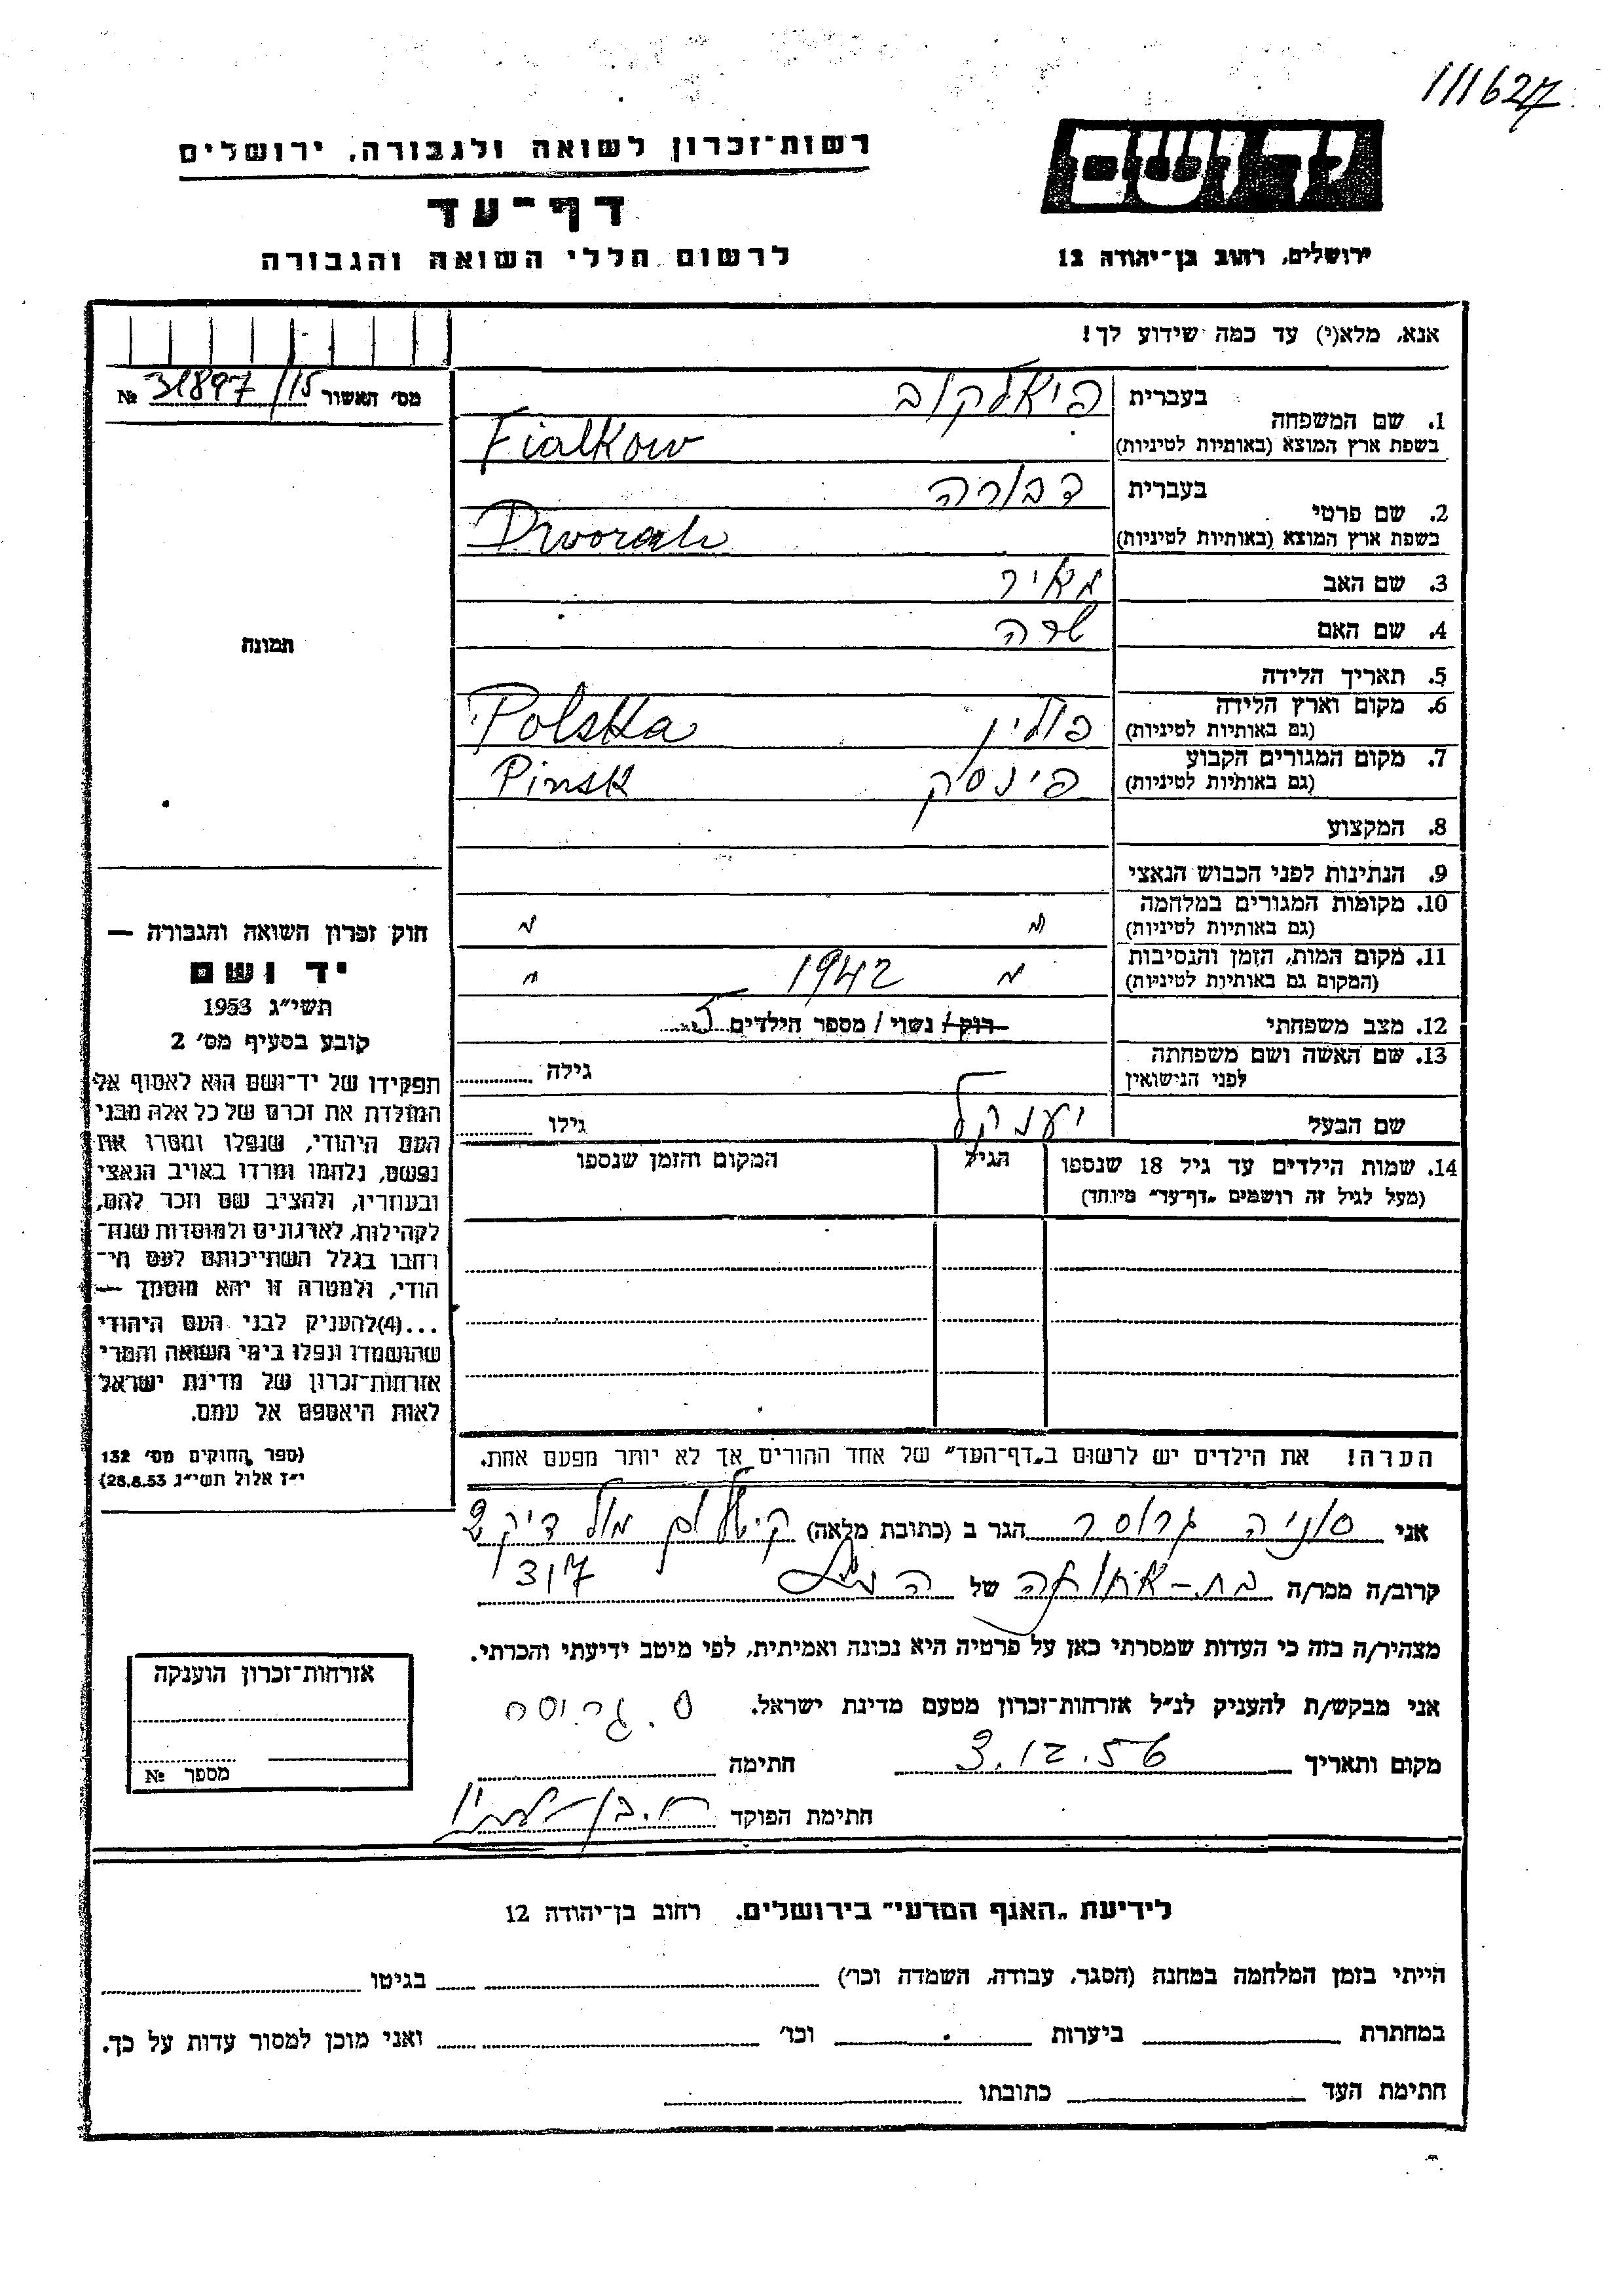 111627
יד ושם
רשות־זכרון לשואה ולגבורה, ירושלים
דף־עד
לרשום חללי השואה והגבורה
ירושלים, רחוב בן־יהודה 12
אנא, מלא(י) עד כמה שידוע לך!
מס׳ האשור 31897/15 №
1. שם המשפחה
בעברית פיאלקוב
בשפת ארץ המוצא (באותיות לטיניות) Fialkow
2. שם פרטי
בעברית דבורה
בשפת ארץ המוצא (באותיות לטיניות) Dworah
3. שם האב מאיר
4. שם האם שרה
5. תאריך הלידה
6. מקום וארץ הלידה
(גם באותיות לטיניות) פולין Polska
7. מקום המגורים הקבוע
(גם באותיות לטיניות) פינסק Pinsk
8. המקצוע
9. הנתינות לפני הכבוש הנאצי
10. מקומות המגורים במלחמה
(גם באותיות לטיניות) " "
11. מקום המות, הזמן והנסיבות
(המקום גם באותיות לטיניות) " 1942 "
12. מצב משפחתי רוק / נשוי / מספר הילדים 5
13. שם האשה ושם משפחתה
לפני הנישואין גילה
שם הבעל יענקל גילו
14. שמות הילדים עד גיל 18 שנספו
(מעל לגיל זה רושמים „דף־עד״ מיוחד)
הגיל
המקום והזמן שנספו
הערה! את הילדים יש לרשום ב„דף־העד״ של אחד ההורים אך לא יותר מפעם אחת.
תמונה
חוק זכרון השואה והגבורה —
יד ושם
תשי״ג 1953
קובע בסעיף מס׳ 2
תפקידו של יד־ושם הוא לאסוף אל
המולדת את זכרם של כל אלה מבני
העם היהודי, שנפלו ומסרו את
נפשם, נלחמו ומרדו באויב הנאצי
ובעוזריו, ולהציב שם וזכר להם,
לקהילות, לארגונים ולמוסדות שנח־
רבו בגלל השתייכותם לעם הי־
הודי, ולמטרה זו יהא מוסמך —
...(4)להעניק לבני העם היהודי
שהושמדו ונפלו בימי השואה והמרי
אזרחות־זכרון של מדינת ישראל
לאות היאספם אל עמם.
(ספר החוקים מס׳ 132
י״ז אלול תשי״ג 28.8.53)
אני סוניה גרוסר הגר ב (כתובת מלאה)
קרוב/ה מכר/ה של
מצהיר/ה בזה כי העדות שמסרתי כאן על פרטיה היא נכונה ואמיתית, לפי מיטב ידיעתי והכרתי.
אני מבקש/ת להעניק לנ״ל אזרחות־זכרון מטעם מדינת ישראל.
מקום ותאריך 3.12.56 חתימה
חתימת הפוקד
אזרחות־זכרון הוענקה
מספר №
לידיעת „האגף המדעי״ בירושלים. רחוב בן־יהודה 12
הייתי בזמן המלחמה במחנה (הסגר, עבודה, השמדה וכו׳) בגיטו
במחתרת ביערות וכו׳ ואני מוכן למסור עדות על כך.
חתימת העד כתובתו